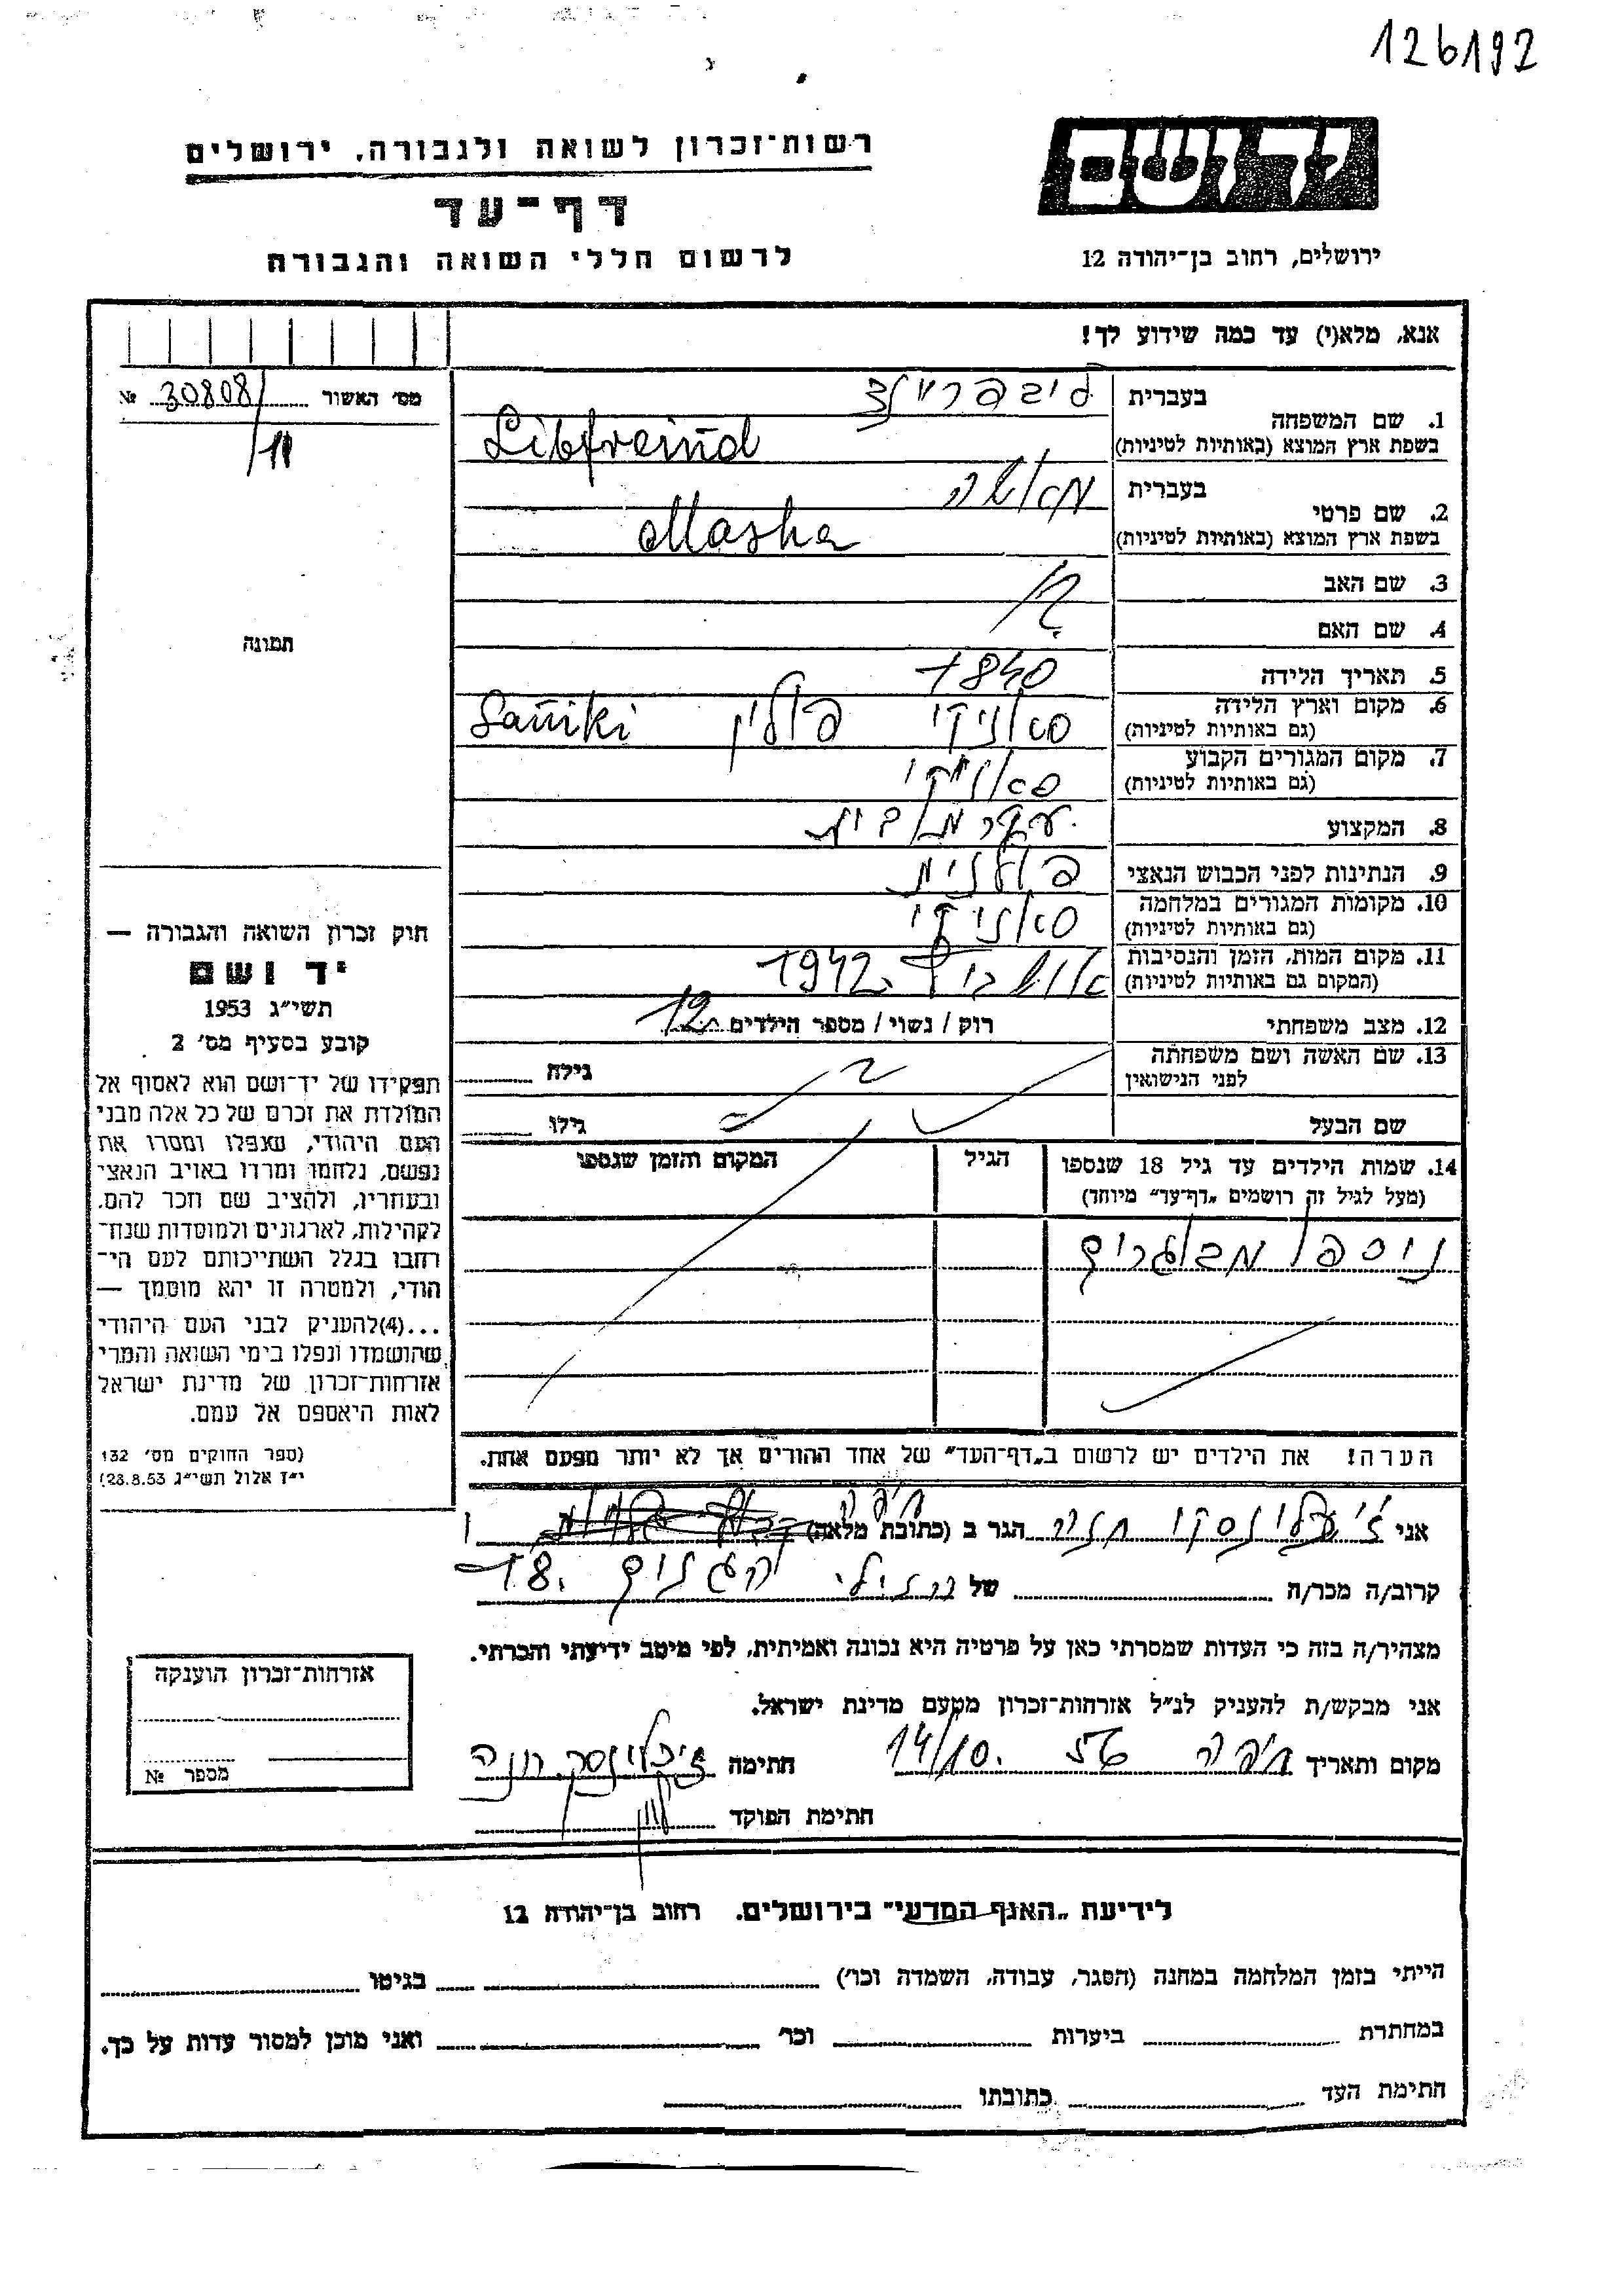 126192
יד ושם
ירושלים, רחוב בן־יהודה 12
רשות־זכרון לשואה ולגבורה, ירושלים
דף־עד
לרשום חללי השואה והגבורה
אנא, מלא(י) עד כמה שידוע לך!
מס׳ האשור № 30808/
11
תמונה
בעברית ליבפריינד
1. שם המשפחה
בשפת ארץ המוצא (באותיות לטיניות) Libfreind
בעברית מאשה
2. שם פרטי
בשפת ארץ המוצא (באותיות לטיניות) Masha
3. שם האב
4. שם האם
5. תאריך הלידה 1840
6. מקום וארץ הלידה
(גם באותיות לטיניות) סאניקי פולין Sańiki
7. מקום המגורים הקבוע
(גם באותיות לטיניות) סאניקי
8. המקצוע עקרת בית
9. הנתינות לפני הכבוש הנאצי פולנית
10. מקומות המגורים במלחמה
(גם באותיות לטיניות) סאניקי
11. מקום המות, הזמן והנסיבות
(המקום גם באותיות לטיניות) אושביץ 1942
12. מצב משפחתי רוק / נשוי / מספר הילדים 12
13. שם האשה ושם משפחתה
לפני הנישואין גילה
שם הבעל גילו
14. שמות הילדים עד גיל 18 שנספו
(מעל לגיל זה רושמים „דף־עד״ מיוחד)
הגיל
המקום והזמן שנספו
ניספו מבוגרים
הערה! את הילדים יש לרשום ב„דף־העד״ של אחד ההורים אך לא יותר מפעם אחת.
חוק זכרון השואה והגבורה —
יד ושם
תשי״ג 1953
קובע בסעיף מס׳ 2
תפקידו של יד־ושם הוא לאסוף אל
המולדת את זכרם של כל אלה מבני
העם היהודי, שנפלו ומסרו את
נפשם, נלחמו ומרדו באויב הנאצי
ובעוזריו, ולהציב שם וזכר להם,
לקהילות, לארגונים ולמוסדות שנח־
רחבו בגלל השתייכותם לעם הי־
הודי, ולמטרה זו יהא מוסמך —
...(4)להעניק לבני העם היהודי
שהושמדו ונפלו בימי השואה והמרי
אזרחות־זכרון של מדינת ישראל
לאות היאספם אל עמם.
(ספר החוקים מס׳ 132
י״ז אלול תשי״ג 28.8.53)
אני הגר ב (כתובת מלאה) חיפה
קרוב/ה מכר/ה של 18.
מצהיר/ה בזה כי העדות שמסרתי כאן על פרטיה היא נכונה ואמיתית, לפי מיטב ידיעתי והכרתי.
אני מבקש/ת להעניק לנ״ל אזרחות־זכרון מטעם מדינת ישראל.
מקום ותאריך חיפה 56 14/10. חתימה
חתימת הפוקד
אזרחות־זכרון הוענקה
מספר №
לידיעת „האגף המדעי״ בירושלים. רחוב בן־יהודה 12
הייתי בזמן המלחמה במחנה (הסגר, עבודה, השמדה וכו׳) בגיטו
במחתרת ביערות וכו׳ ואני מוכן למסור עדות על כך.
חתימת העד כתובתו